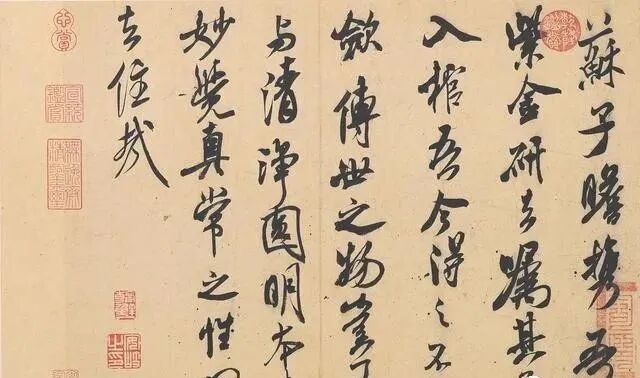 蘇子瞻攜吾
紫金研去囑其
入棺吾今得之不
斂傳世之物豈
与清淨圓明本
妙覺真常之性
去住哉